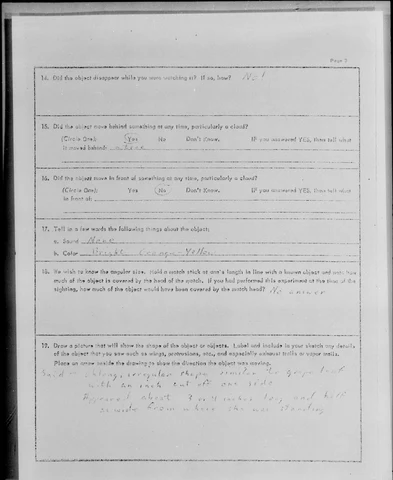 Page 3
14. Did the object disappear while you were watching it? If so, how? No!
15. Did the object move behind something at any time, particularly a cloud?
(Circle One): Yes No Don't Know. IF you answered YES, then tell what
it moved behind:
16. Did the object move in front of something at any time, particularly a cloud?
(Circle One): Yes No Don't Know. IF you answered YES, then tell what
in front of:
17. Tell in a few words the following things about the object:
a. Sound None
b. Color Bright Orange Yellow
18. We wish to know the angular size. Hold a match stick at arm's length in line with a known object and note how
much of the object is covered by the head of the match. If you had performed this experiment at the time of the
sighting, how much of the object would have been covered by the match head? No answer
19. Draw a picture that will show the shape of the object or objects. Label and include in your sketch any details
of the object that you saw such as wings, protrusions, etc., and especially exhaust trails or vapor trails.
Place an arrow beside the drawing to show the direction the object was moving.
Said oblong, irregular shape similar to
with an inch cut off one side
Appeared about inches long and half
as wide from where she was standing